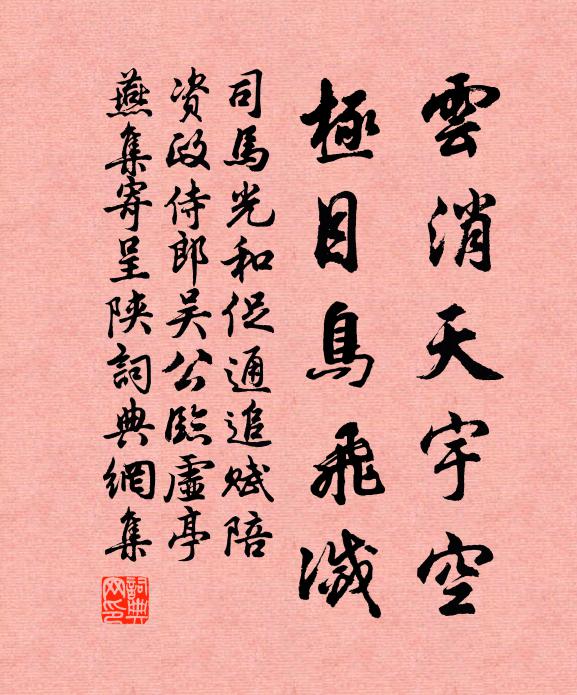 雲消天宇空
極目鳥飛滅
司馬光和促通追賦陪
資政侍郎吳公臨虛亭
燕集寄呈陝詞典網集
詞典網印